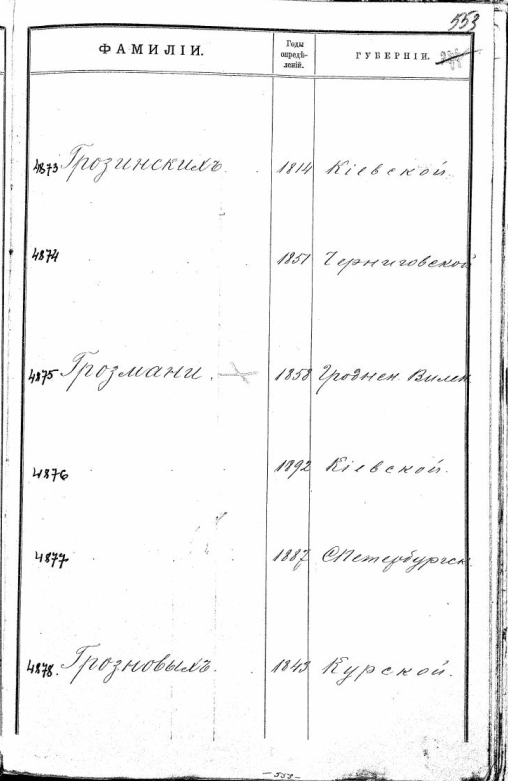 553
ФАМИЛІИ. Годы опредѣленій. ГУБЕРНІИ.
4873 Грозинскихъ. 1814 Кіевской
4874 1851 Черниговской
4875 Грозмани. 1858 Гроднен. Вилен.
4876 1892 Кіевской.
4877 1887 СПетербургск.
4878. Грозновыхъ. 1843 Курской.
— 553 —